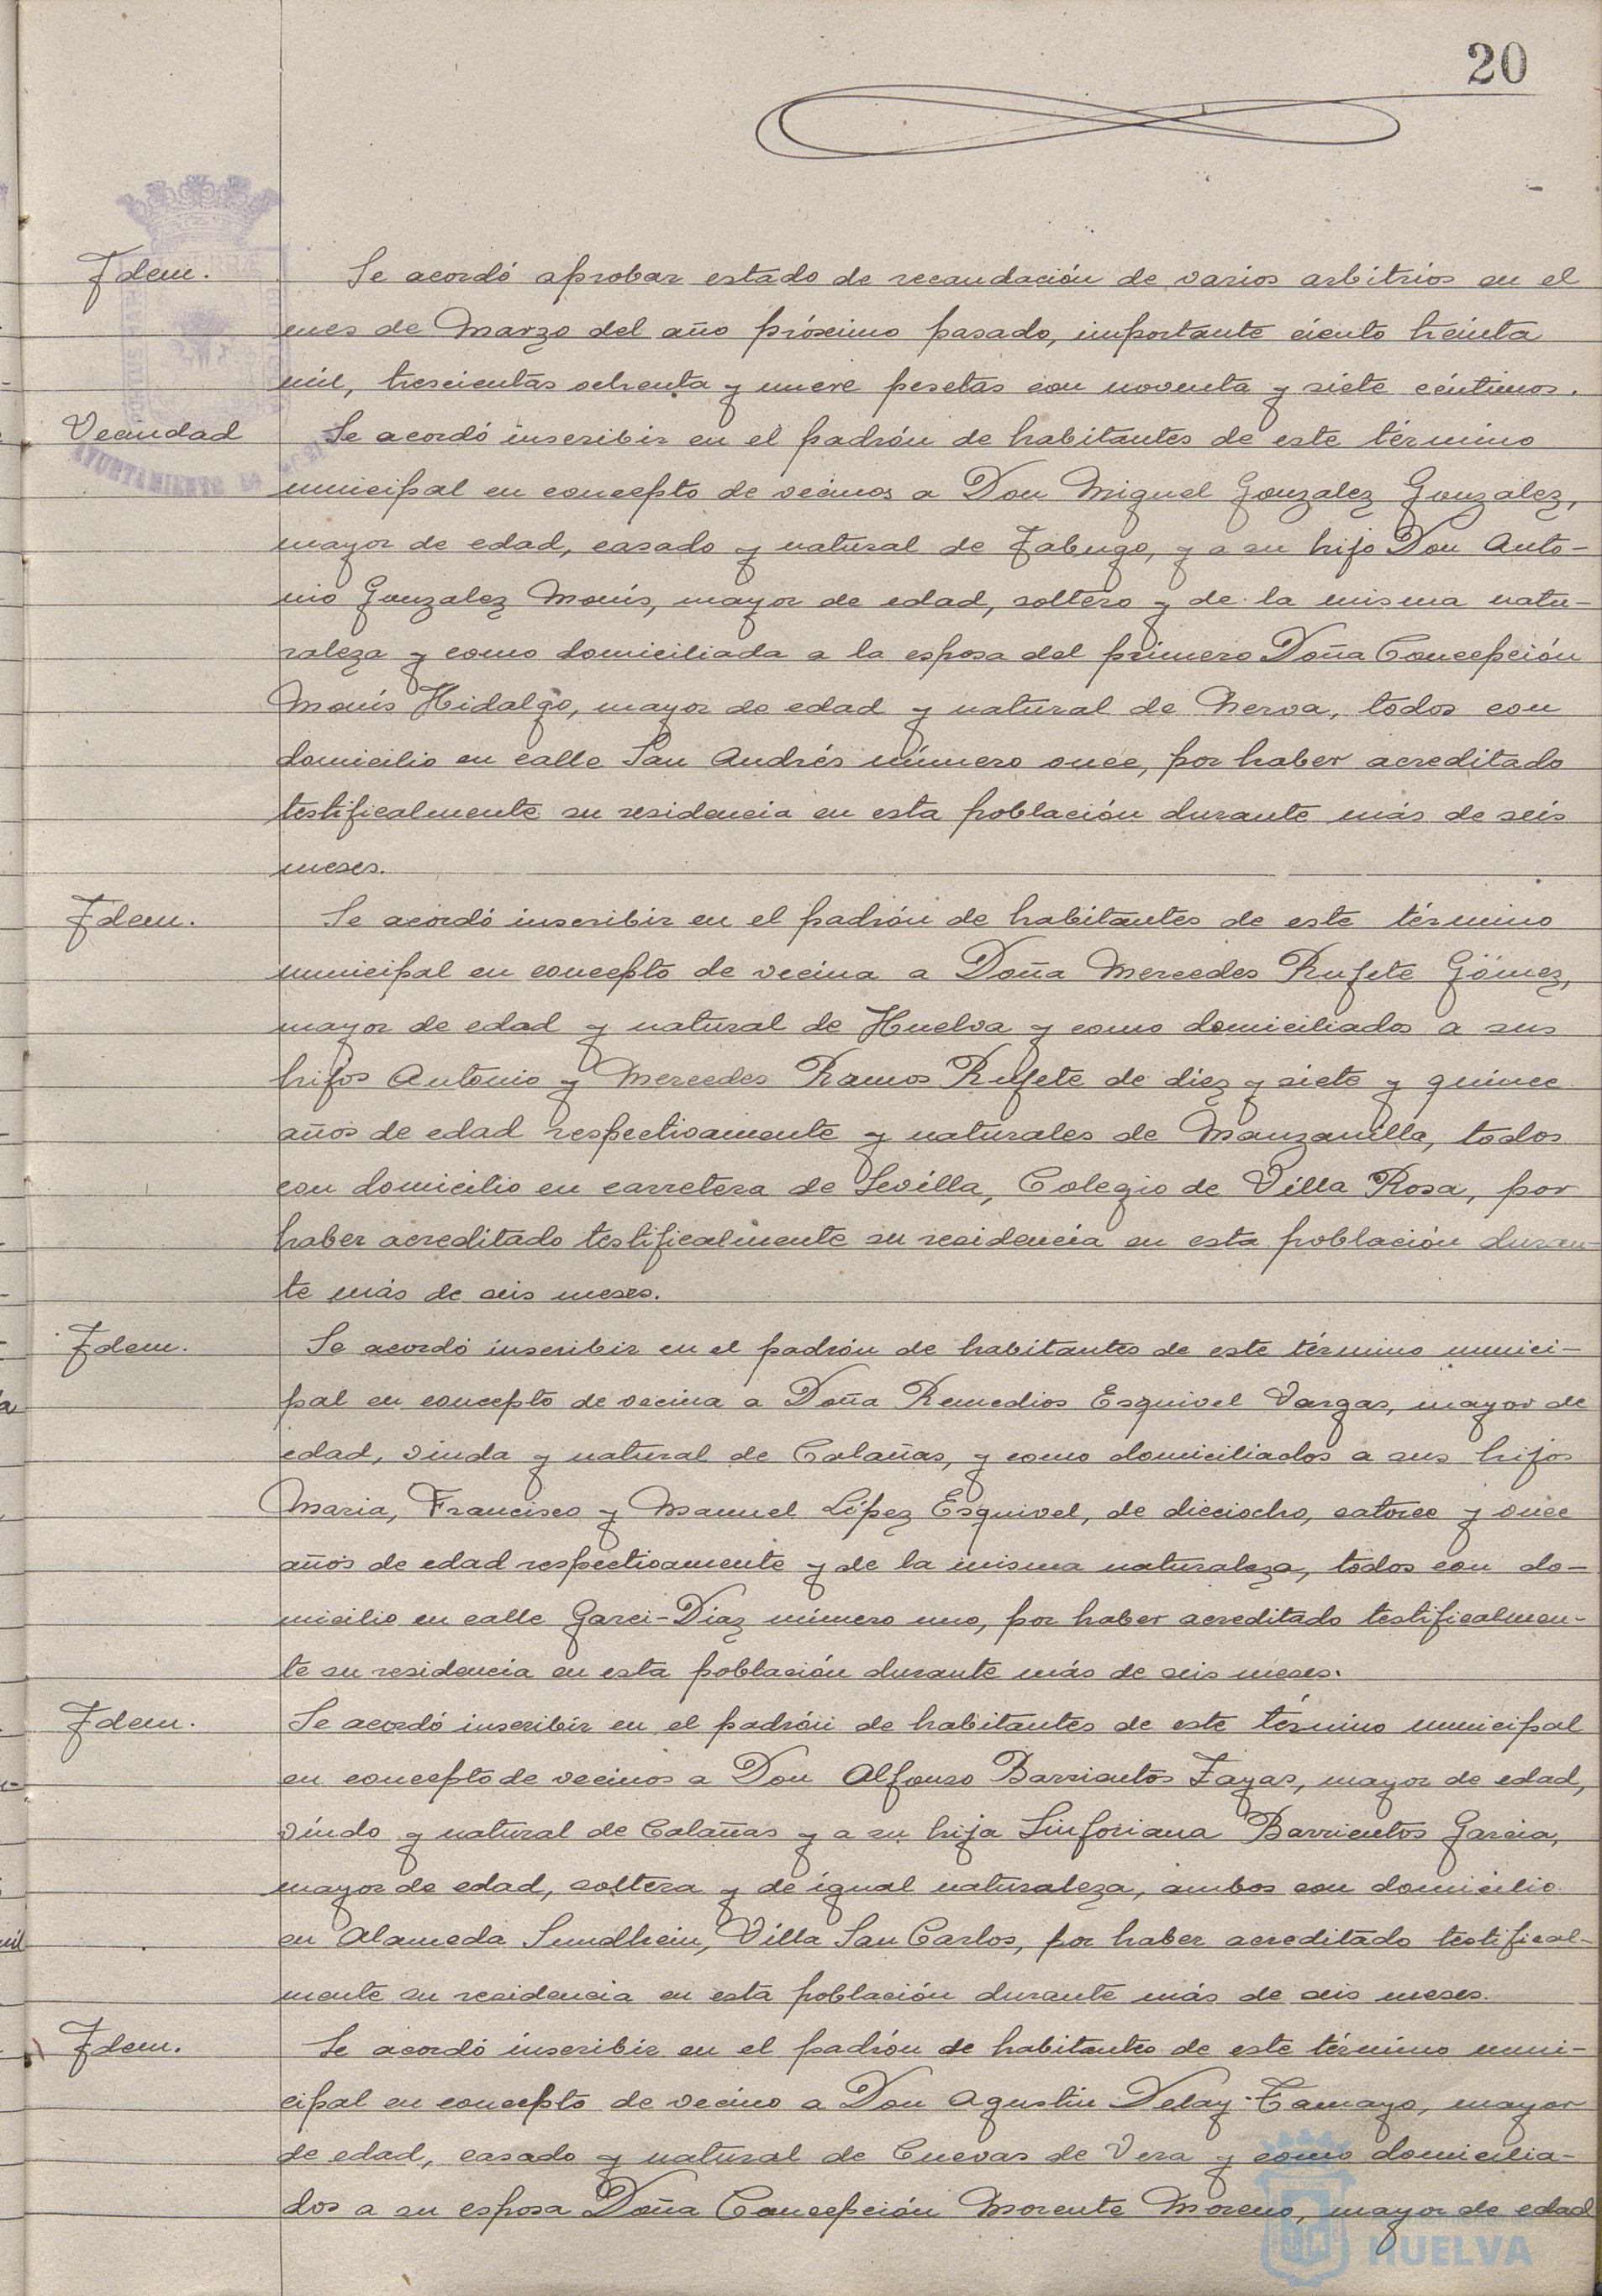 20
Idem. Se acordó aprobar estado de recaudación de varios arbitrios en el
mes de Marzo del año próximo pasado, importante ciento treinta
mil, trescientas ochenta y nueve pesetas con noventa y siete céntimos.
Vecindad Se acordó inscribir en el padrón de habitantes de este término
municipal en concepto de vecinos a Don Miguel Gonzalez Gonzalez,
mayor de edad, casado y natural de Jabugo, y a su hijo Don Anto-
nio Gonzalez Monís, mayor de edad, soltero y de la misma natu-
raleza y como domiciliada a la esposa del primero Doña Concepción
Monís Hidalgo, mayor de edad y natural de Nerva, todos con
domicilio en calle San Andrés número once, por haber acreditado
testificalmente su residencia en esta población durante más de seis
meses.
Idem. Se acordó inscribir en el padrón de habitantes de este término
municipal en concepto de vecina a Doña Mercedes Rufete Gómez,
mayor de edad y natural de Huelva y como domiciliados a sus
hijos Antonio y Mercedes Ramos Rufete de diez y siete y quince
años de edad respectivamente y naturales de Manzanilla, todos
con domicilio en carretera de Sevilla, Colegio de Villa Rosa, por
haber acreditado testificalmente su residencia en esta población duran-
te más de seis meses.
Idem. Se acordó inscribir en el padrón de habitantes de este término munici-
pal en concepto de vecina a Doña Remedios Esquivel Vargas, mayor de
edad, viuda y natural de Calañas, y como domiciliados a sus hijos
Maria, Francisco y Manuel López Esquivel, de dieciocho, catorce y once
años de edad respectivamente y de la misma naturaleza, todos con do-
micilio en calle Garci-Diaz número uno, por haber acreditado testificalmen-
te su residencia en esta población durante más de seis meses.
Idem. Se acordó inscribir en el padrón de habitantes de este término municipal
en concepto de vecinos a Don Alfonso Barrientos Zayas, mayor de edad,
viudo y natural de Calañas y a su hija Sinforiana Barrientos Garcia,
mayor de edad, soltera y de igual naturaleza, ambos con domicilio
en Alameda Sundhein, Villa San Carlos, por haber acreditado testifical-
mente su residencia en esta población durante más de seis meses.
Idem. Se acordó inscribir en el padrón de habitantes de este término muni-
cipal en concepto de vecino a Don Agustin Delay Tamayo, mayor
de edad, casado y natural de Cuevas de Vera y como domicilia-
dos a su esposa Doña Concepción Morente Moreno, mayor de edad
HUELVA